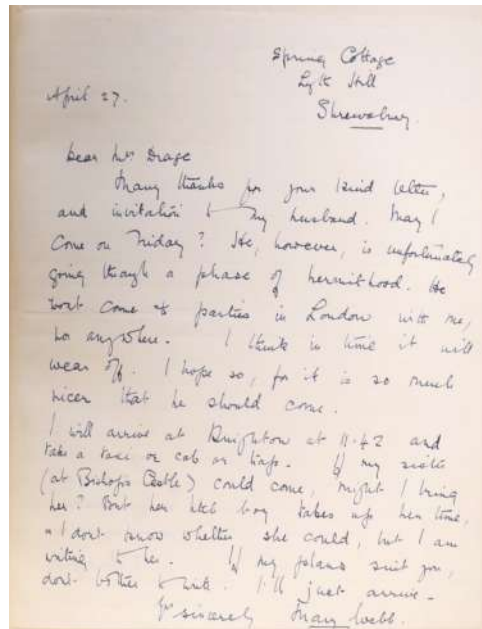 Spring Cottage
Lyth Hill
Shrewsbury.
April 27.
Dear Mrs Drage
Many thanks for your kind letter,
and invitation to my husband. May I
come on Friday? He, however, is unfortunately
going through a phase of hermithood. He
wont come to parties in London with me,
nor anywhere. I think in time it will
wear off. I hope so, for it is so much
nicer that he should come.
I will arrive at Knighton at 11-42 and
take a taxi or cab or trap. If my sister
(at Bishops Castle) could come, might I bring
her? But her little boy takes up her time,
& I dont know whether she could, but I am
writing to her. If my plans suit you,
dont bother to write. I'll just arrive -
Yrs sincerely Mary Webb.